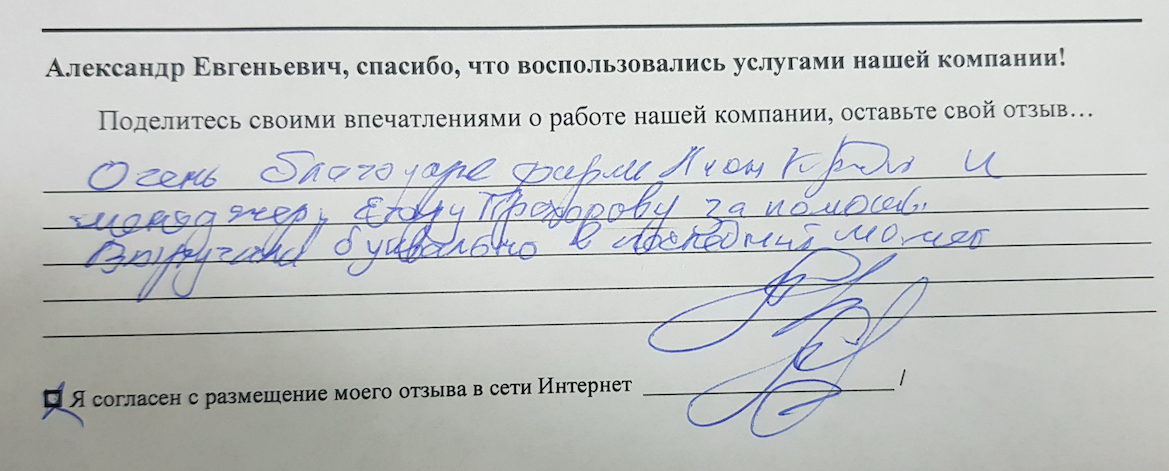 Александр Евгеньевич, спасибо, что воспользовались услугами нашей компании!
Поделитесь своими впечатлениями о работе нашей компании, оставьте свой отзыв…
Очень благодаре фирме и
менеджеру Егору Прохорову за помощь.
Выручали буквально в последний момет
Я согласен с размещение моего отзыва в сети Интернет /